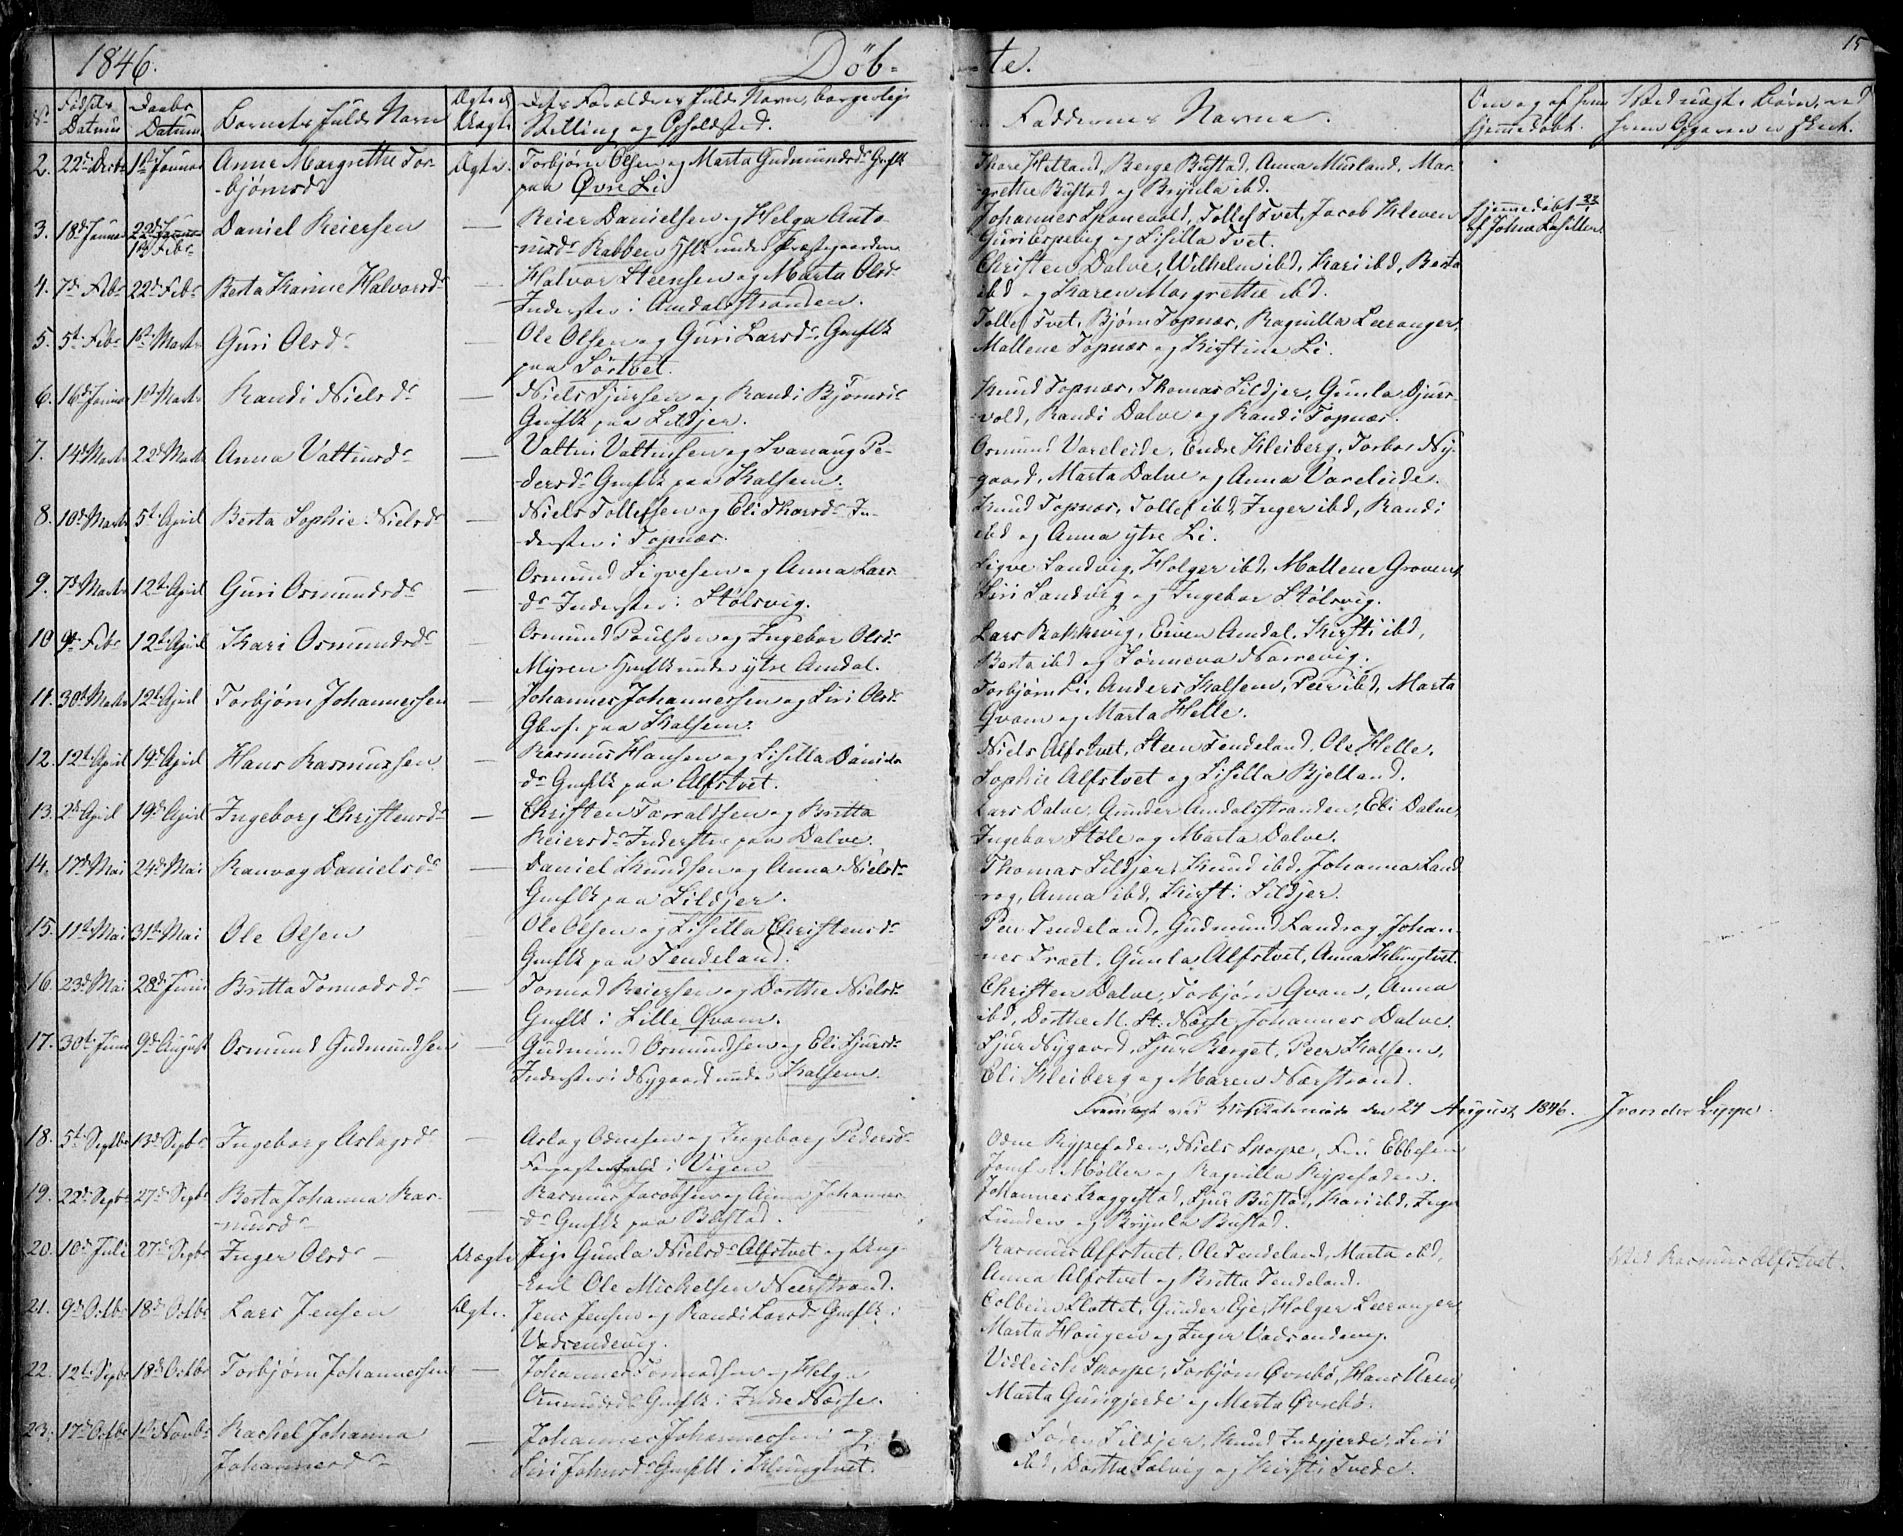 1846.
Døb-
-te.
15
No
Fødsels Datum
Daabs Datum
Barnets fulde Navn
Ægte el. Uægte
Dets Forældres fulde Navn, borgerlige Stilling og Opholdsted.
Faddernes Navne.
Om og af hvem hjemmedøbt.
Ved uægte Børn, ved hvem Opgaven er skeet.
2. 22d Decbr 1st Januar Anne Margrethe Tor-
-bjørnsdr
Ægte. Torbjørn Olsen og Marta Gudmundsdr Gmflk
paa Øvre Li
Thore Hetland, Berge Bustad, Anna Musland, Mar-
grethe Bustad og Brynla ibd.
3. 18d Januar 22d Januar 1st Febr Daniel Reiersen
— Reier Danielsen og Helga Asto-
-nusdr Rabben Hflk under Præstegaarden
Johannes Sponevold, Tollef Tvet, Jacob Kleven
Guri Espevig og Lisilla Tvet.
hjemmedøbt 22
af Johns Lasillen
4. 7d Febr 22d Febr Berta Karine Halvorsdr
— Halvor Steensen og Marta Olsdr
Inderster i Amdalsstranden.
Christen Dalve, Wilhelm ibd, Kari ibd, Berta
ibd og Karen Margrethe ibd.
5. 5t Febr 1st Marts Guri Olsdr
— Ole Olsen og Guri Larsdr Gmflk
paa Sørtvet.
Tollef Tvet, Bjørn Topnæs, Ragnilla Leeranger,
Mallene Topnæs og Kirstine Li.
6. 16d Januar 1st Marts Randi Nielsdr
— Niels Sjursen og Randi Bjørnsdr
Gmflk paa Lildjer.
Knud Topnæs, Thomas Lildjer, Gunla Djurs-
-vold, Randi Dalve og Randi Topnæs.
7. 14d Marts 22d Marts Anna Valtinsdr
— Valtin Valtinsen og Svanaug Pe-
dersdr Gmflk paa Kalsem.
Osmund Vareleide, Endre Kleiberg, Torbør Ny-
gaard, Marta Dalve og Anna Vareleide.
8. 10d Marts 5t April Berta Sophie Nielsdr
— Niels Tollefsen og Eli Thorsdr In-
-derster i Topnæs.
Knud Topnæs, Tollef ibd, Inger ibd, Randi
ibd og Anna ytre Li.
9. 7d Marts 12t April Guri Osmundsdr
— Osmund Sigvesen og Anna Lars-
dr Inderster i Stølsvig.
Sigve Sandvig, Holger ibd, Mallene Groven,
Siri Sandvig og Ingebor Stølsvig.
10 9d Febr 12t April Kari Osmundsdr
— Osmund Paulsen og Ingebor Olsdr
Myren Hmflk under ytre Amdal.
Lars Bakkevig, Eiven Amdal, Kirsti ibd,
Berta ibd og Sønneva Narrevig.
11. 30t Marts 12t April Torbjørn Johannessen
— Johannes Johannessen og Siri Olsdr
Gbrf. paa Kalsem.
Torbjørn Li, Anders Kalsem, Peer ibd, Marta
Qvam og Marta Helle.
12. 12t April 19d April Hans Rasmussen
— Rasmus Hansen og Lisilla Daniels-
dr Gmflk paa Alfstvet.
Niels Alfstvet, Steen Tendeland, Ole Helle,
Sophie Alfstvet og Lisilla Bjelland.
13. 2d April 19d April Ingeborg Christensdr
— Christen Torvaldsen og Britta
Reiersdr Inderster paa Dalve.
Lars Dalve, Gunder Amdalsstranden, Eli Dalve,
Ingebor Støle og Marta Dalve.
14. 17d Mai 24d Mai Ranvog Danielsdr
— Daniel Knudsen og Anna Nielsdr
Gmflk paa Lildjer.
Thomas Lildjer, Knud ibd, Johanna Land-
rog, Anna ibd, Kirsti Lildjer.
15. 11t Mai 31t Mai Ole Olsen
Ole Olsen og Lisilla Christensdr
Gmflk paa Tendeland.
Peer Tendeland, Gudmund Landrog, Johan-
nes Træet, Gunla Alfstvet, Anna Klungtvet.
16. 23d Mai 28d Juni Britta Tormodsdr
— Tormod Reiersen og Dorthe Nielsdr
Gmflk i Lille Qvam.
Christen Dalve, Torbjørn Qvam, Anna
ibd, Dorthe M. St. Næsse, Johannes Dalve.
17. 30t Juni 9d August Osmund Gudmundsen
— Gudmund Osmundsen og Eli Sjursdr
Inderster i Nygaard under Kalsem.
Sjur Nygaard, Sjur Berget, Peer Kalsem,
Eli Kleiberg og Maren Nærstrand.
Fremlagt ved Visitatsmøde den 24 August 1846. J von der Lippe.
18. 5t Septbr 13d Sepbr Ingeborg Aslagsdr
— Aslag Odnesen og Ingeborg Pedersdr
Forpagterfolk i Vigen
Odne Rypefoden, Niels Skorpe, Fru Ebbesen
Jomf. Møller og Ragnilla Rypefoden.
19. 22d Sepbr 27d Sepbr Berta Johanna Ras-
-musdr
— Rasmus Jacobsen og Anna Johannes-
dr Gmflk paa Bustad.
Johannes Kraggestad, Sjur Bustad, Kari ibd, Inger
Lunden og Brynla Bustad.
20. 10d Juli 27d Sepbr Inger Olsdr —
Uægte Pige Gunla Nielsdr Alfstvet og Ung-
-karl Ole Mickelsen Neerstrand.
Rasmus Alfstvet, Ole Tendeland, Marta ibd,
Anna Alfstvet og Britta Tendeland.
Ved Rasmus Alfstvet.
21. 9d Octbr 18d Octbr Lars Jensen
Ægte. Jens Jensen og Randi Larsdr Gmflk i
Vadsendevig.
Colbein Slottet, Gunder Eje, Holger Leeranger,
Marta Hougen og Inger Vadsendevig.
22. 12t Sepbr 18d Octbr Torbjørn Johannessen
— Johannes Tormodsen og Helga
Asmundsdr Gmflk i Indre Næsse.
Vidleich Skorpe, Torbjørn Øvrebø, Hans Uren,
Marta Gungjerde og Marta Øvrebø.
23. 17d Octbr 1st Novbr Rachel Johanna
Johannesdr
— Johannes Johannessen og
Siri Johnsdr Gmflk i Klungtvet.
Søren Lildjer, Knud Indgjerde, Siri
ibd, Dorthe Solvig og Kirsti Tvede.